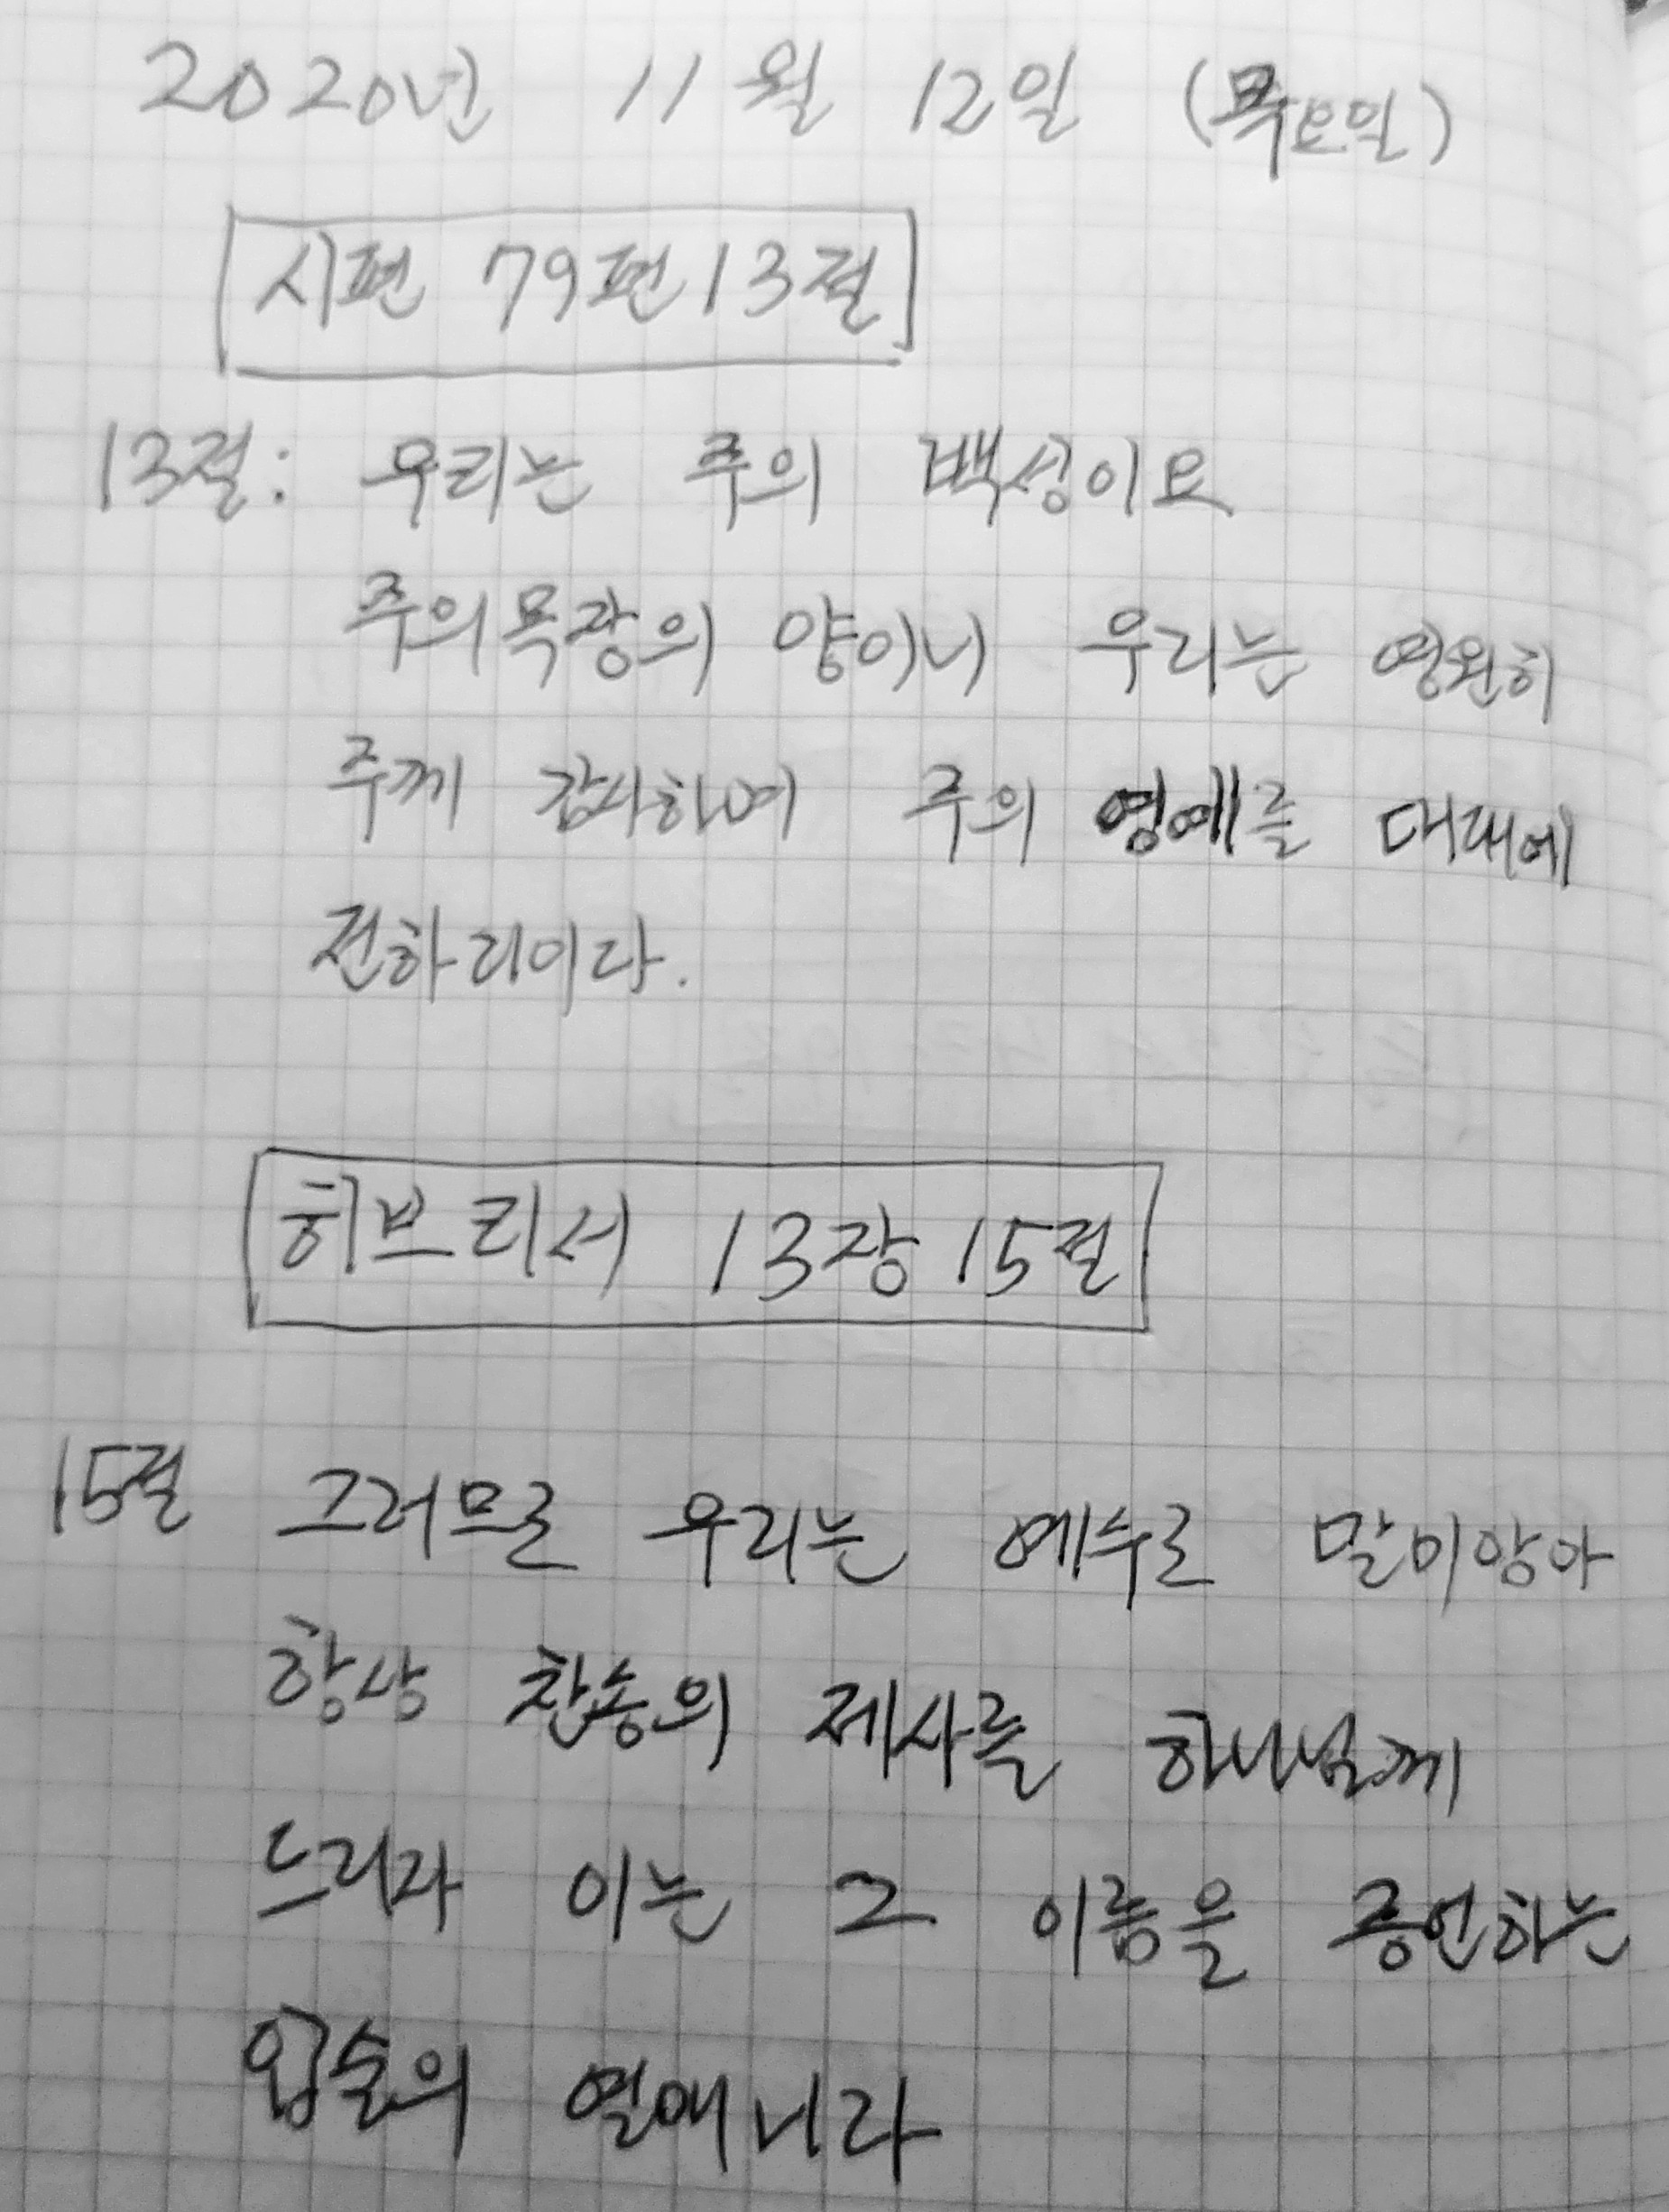 2020년 11월 12일 (목요일)
시편 79편 13절
13절: 우리는 주의 백성이요
주의 목장의 양이니 우리는 영원히
주께 감사하며 주의 영예를 대대에
전하리이다.
히브리서 13장 15절
15절 그러므로 우리는 예수로 말미암아
항상 찬송의 제사를 하나님께
드리자 이는 그 이름을 증언하는
입술의 열매니라